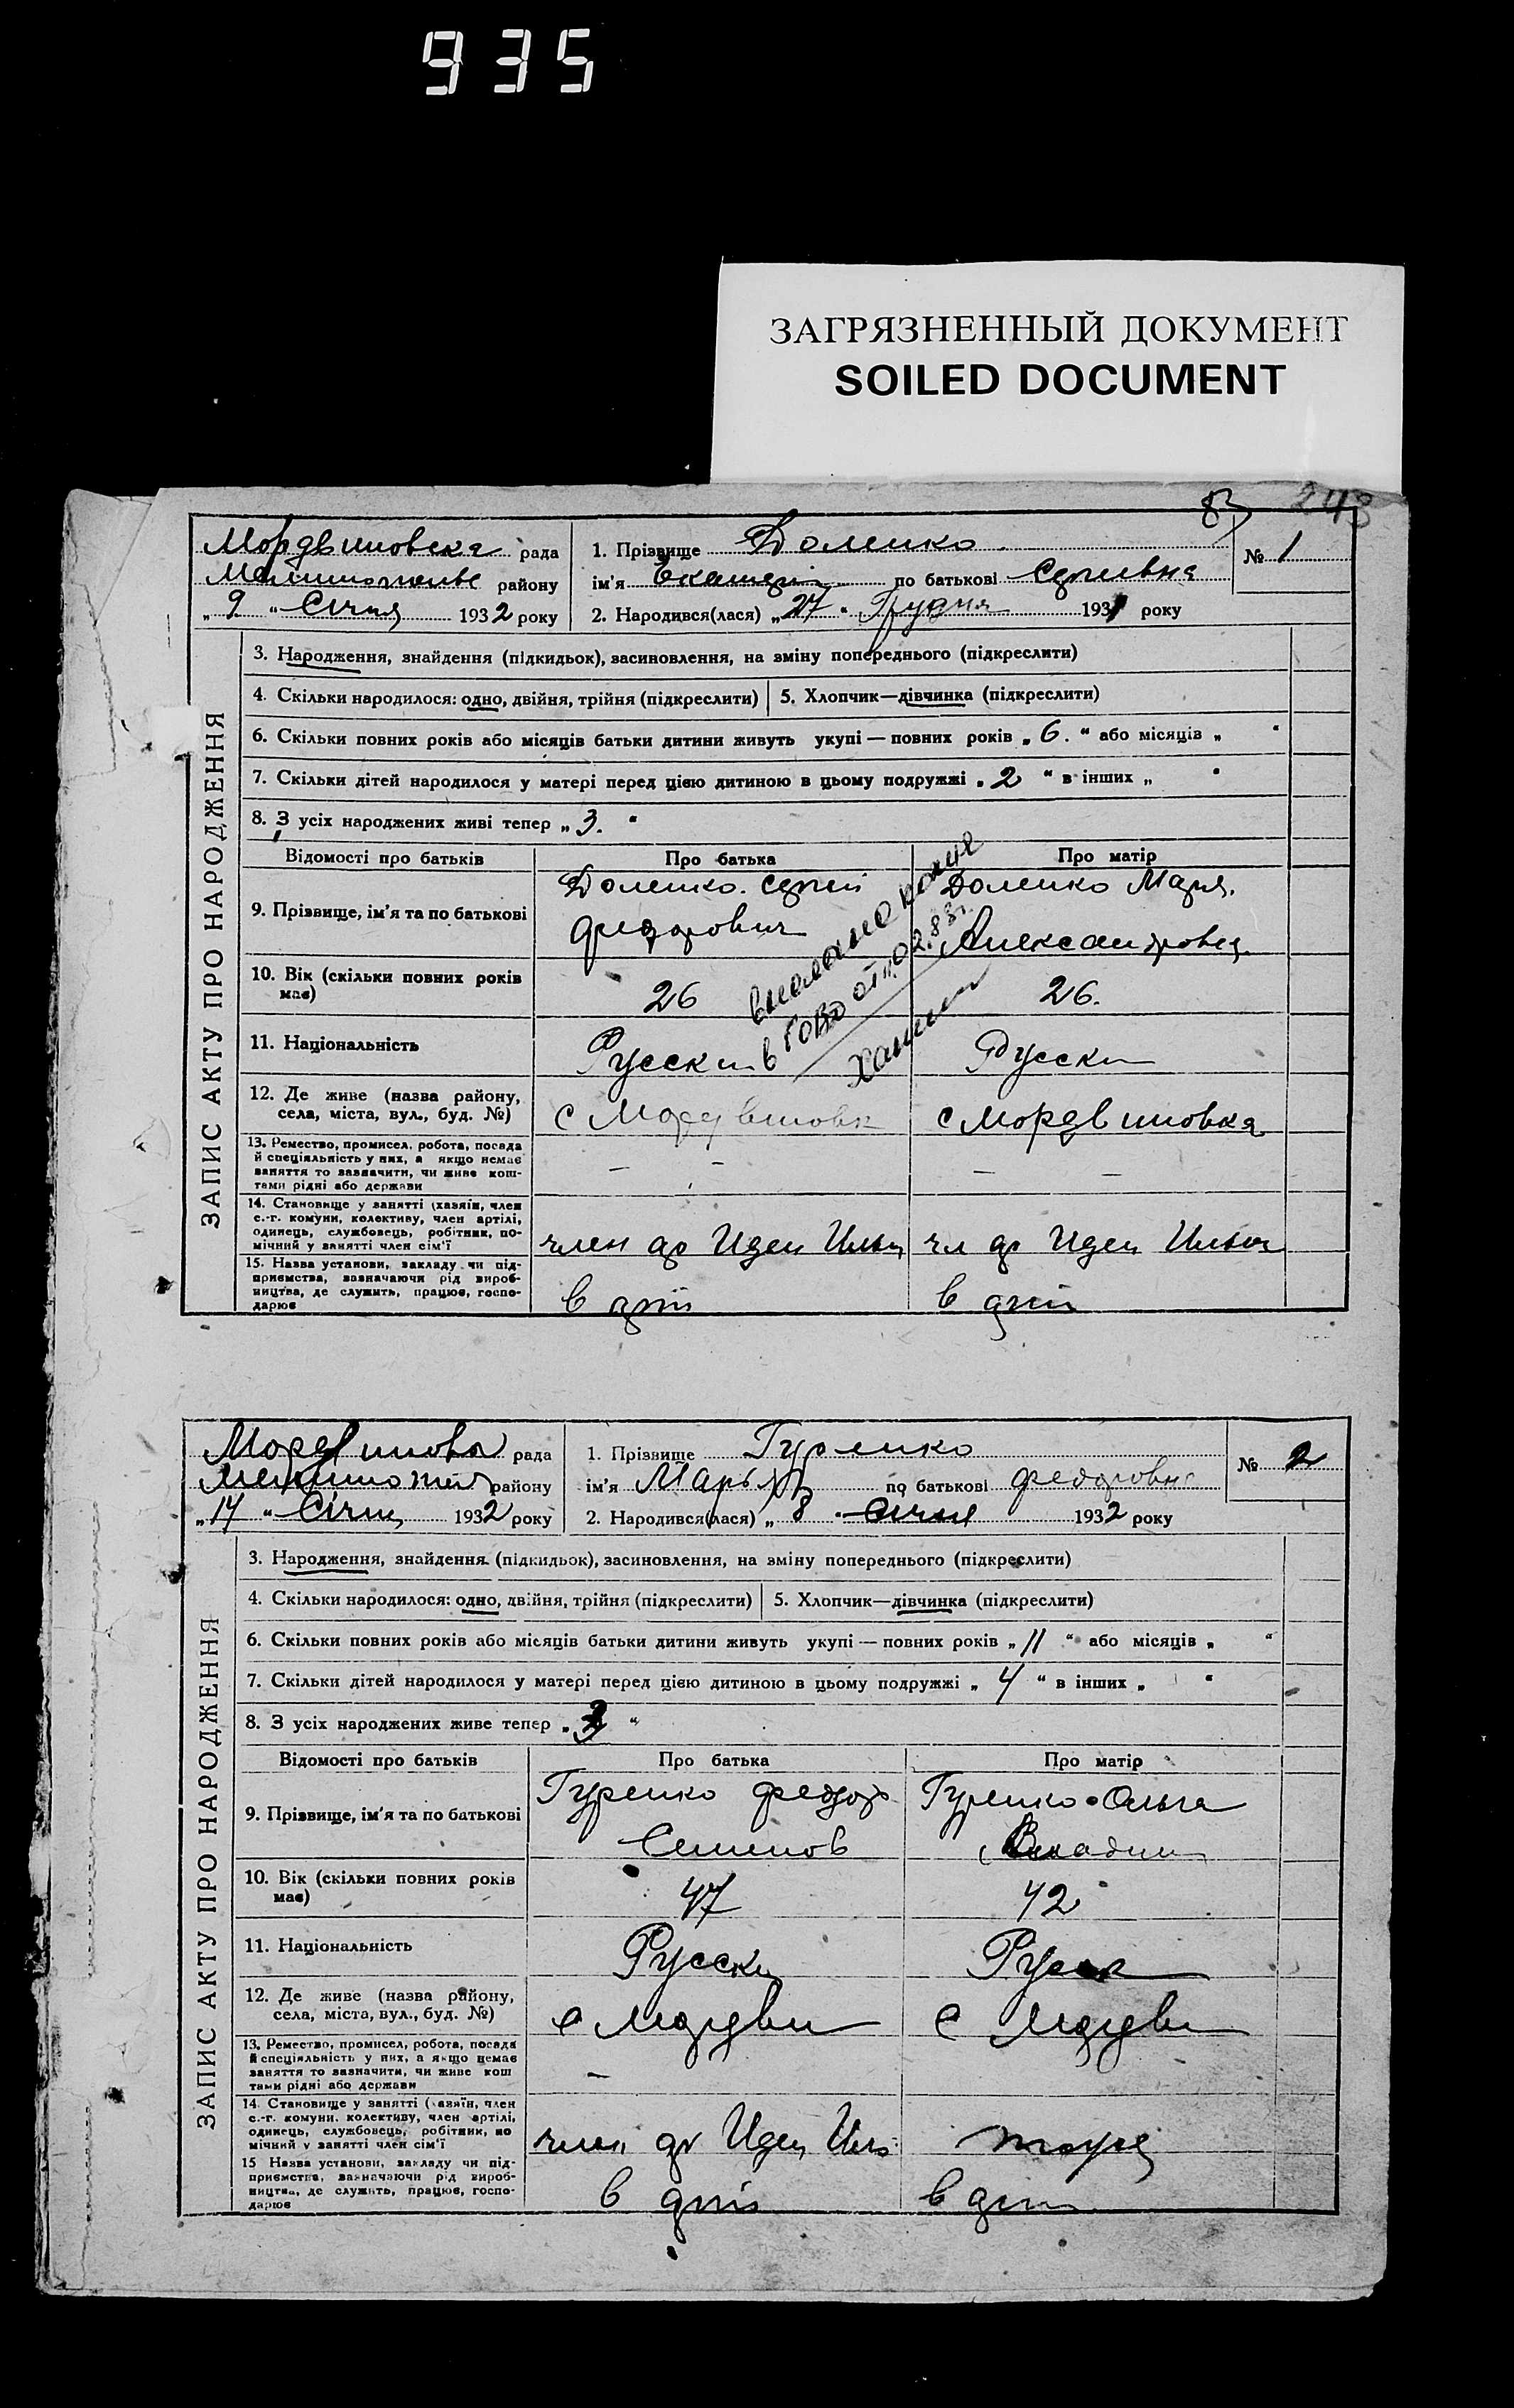 935
ЗАГРЯЗНЕННЫЙ ДОКУМЕНТ
SOILED DOCUMENT
83 248
Мордвиновска рада
району
„ 9 “ Січня 1932 року
1. Прізвище Доленко
ім'я по батькові
2. Народився(лася) „ 27 “ Грудня 1931 року
№ 1
ЗАПИС АКТУ ПРО НАРОДЖЕННЯ
3. Народження, знайдення (підкидьок), засиновлення, на зміну попереднього (підкреслити)
4. Скільки народилося: одно, двійня, трійня (підкреслити)
5. Хлопчик—дівчинка (підкреслити)
6. Скільки повних років або місяців батьки дитини живуть укупі — повних років „ 6. “ або місяців „ “
7. Скільки дітей народилося у матері перед цією дитиною в цьому подружжі „ 2 “ в інших „ “
8. З усіх народжених живі тепер „ 3. “
Відомості про батьків
Про батька
Про матір
9. Прізвище, ім'я та по батькові
Доленко Сергій
Федорович
Доленко Мария
Александровна
10. Вік (скільки повних років має)
26
26.
11. Національність
Русски
Русски
12. Де живе (назва району,
села, міста, вул., буд. №)
с Мордвиновк
с Мордвиновка
13. Ремество, промисел, робота, посада
й спеціяльність у них, а якщо немає
заняття то зазначити, чи живе кош-
тами рідні або держави
— —
— —
14. Становище у занятті (хазяїн, член
с.-г. комуни, колективу, член артілі,
одинець, службовець, робітник, по-
мічний у занятті член сім'ї
член др Иден Ильи
чл др Иден Ильи
15. Назва установи, закладу чи під-
приємства, зазначаючи рід вироб-
ництва, де служить, працює, госпо-
дарює
в
в
рада
району
„ 14 “ Січня 1932 року
1. Прізвище Гуренко
ім'я Марья по батькові Федоровна
2. Народився(лася) „ 8 “ Січня 1932 року
№ 2
ЗАПИС АКТУ ПРО НАРОДЖЕННЯ
3. Народження, знайдення (підкидьок), засиновлення, на зміну попереднього (підкреслити)
4. Скільки народилося: одно, двійня, трійня (підкреслити)
5. Хлопчик—дівчинка (підкреслити)
6. Скільки повних років або місяців батьки дитини живуть укупі — повних років „ 11 “ або місяців „ “
7. Скільки дітей народилося у матері перед цією дитиною в цьому подружжі „ 4 “ в інших „ “
8. З усіх народжених живе тепер „ 3 “
Відомості про батьків
Про батька
Про матір
9. Прізвище, ім'я та по батькові
Гуренко Федор
Семенов
Гуренко Ольга
10. Вік (скільки повних років має)
47
42
11. Національність
Русски
Русск
12. Де живе (назва району,
села, міста, вул., буд. №)
с Мордви
с Мордви
13. Ремество, промисел, робота, посада
й спеціяльність у них, а якщо немає
заняття то зазначити, чи живе кош
тами рідні або держави
—
14. Становище у занятті (хазяїн, член
с.-г. комуни, колективу, член артілі,
одинець, службовець, робітник, по
мічний у занятті член сім'ї
член др Иден Иль
15 Назва установи, закладу чи під-
приємства, зазначаючи рід вироб-
ництва, де служить, працює, госпо-
дарює
в
в